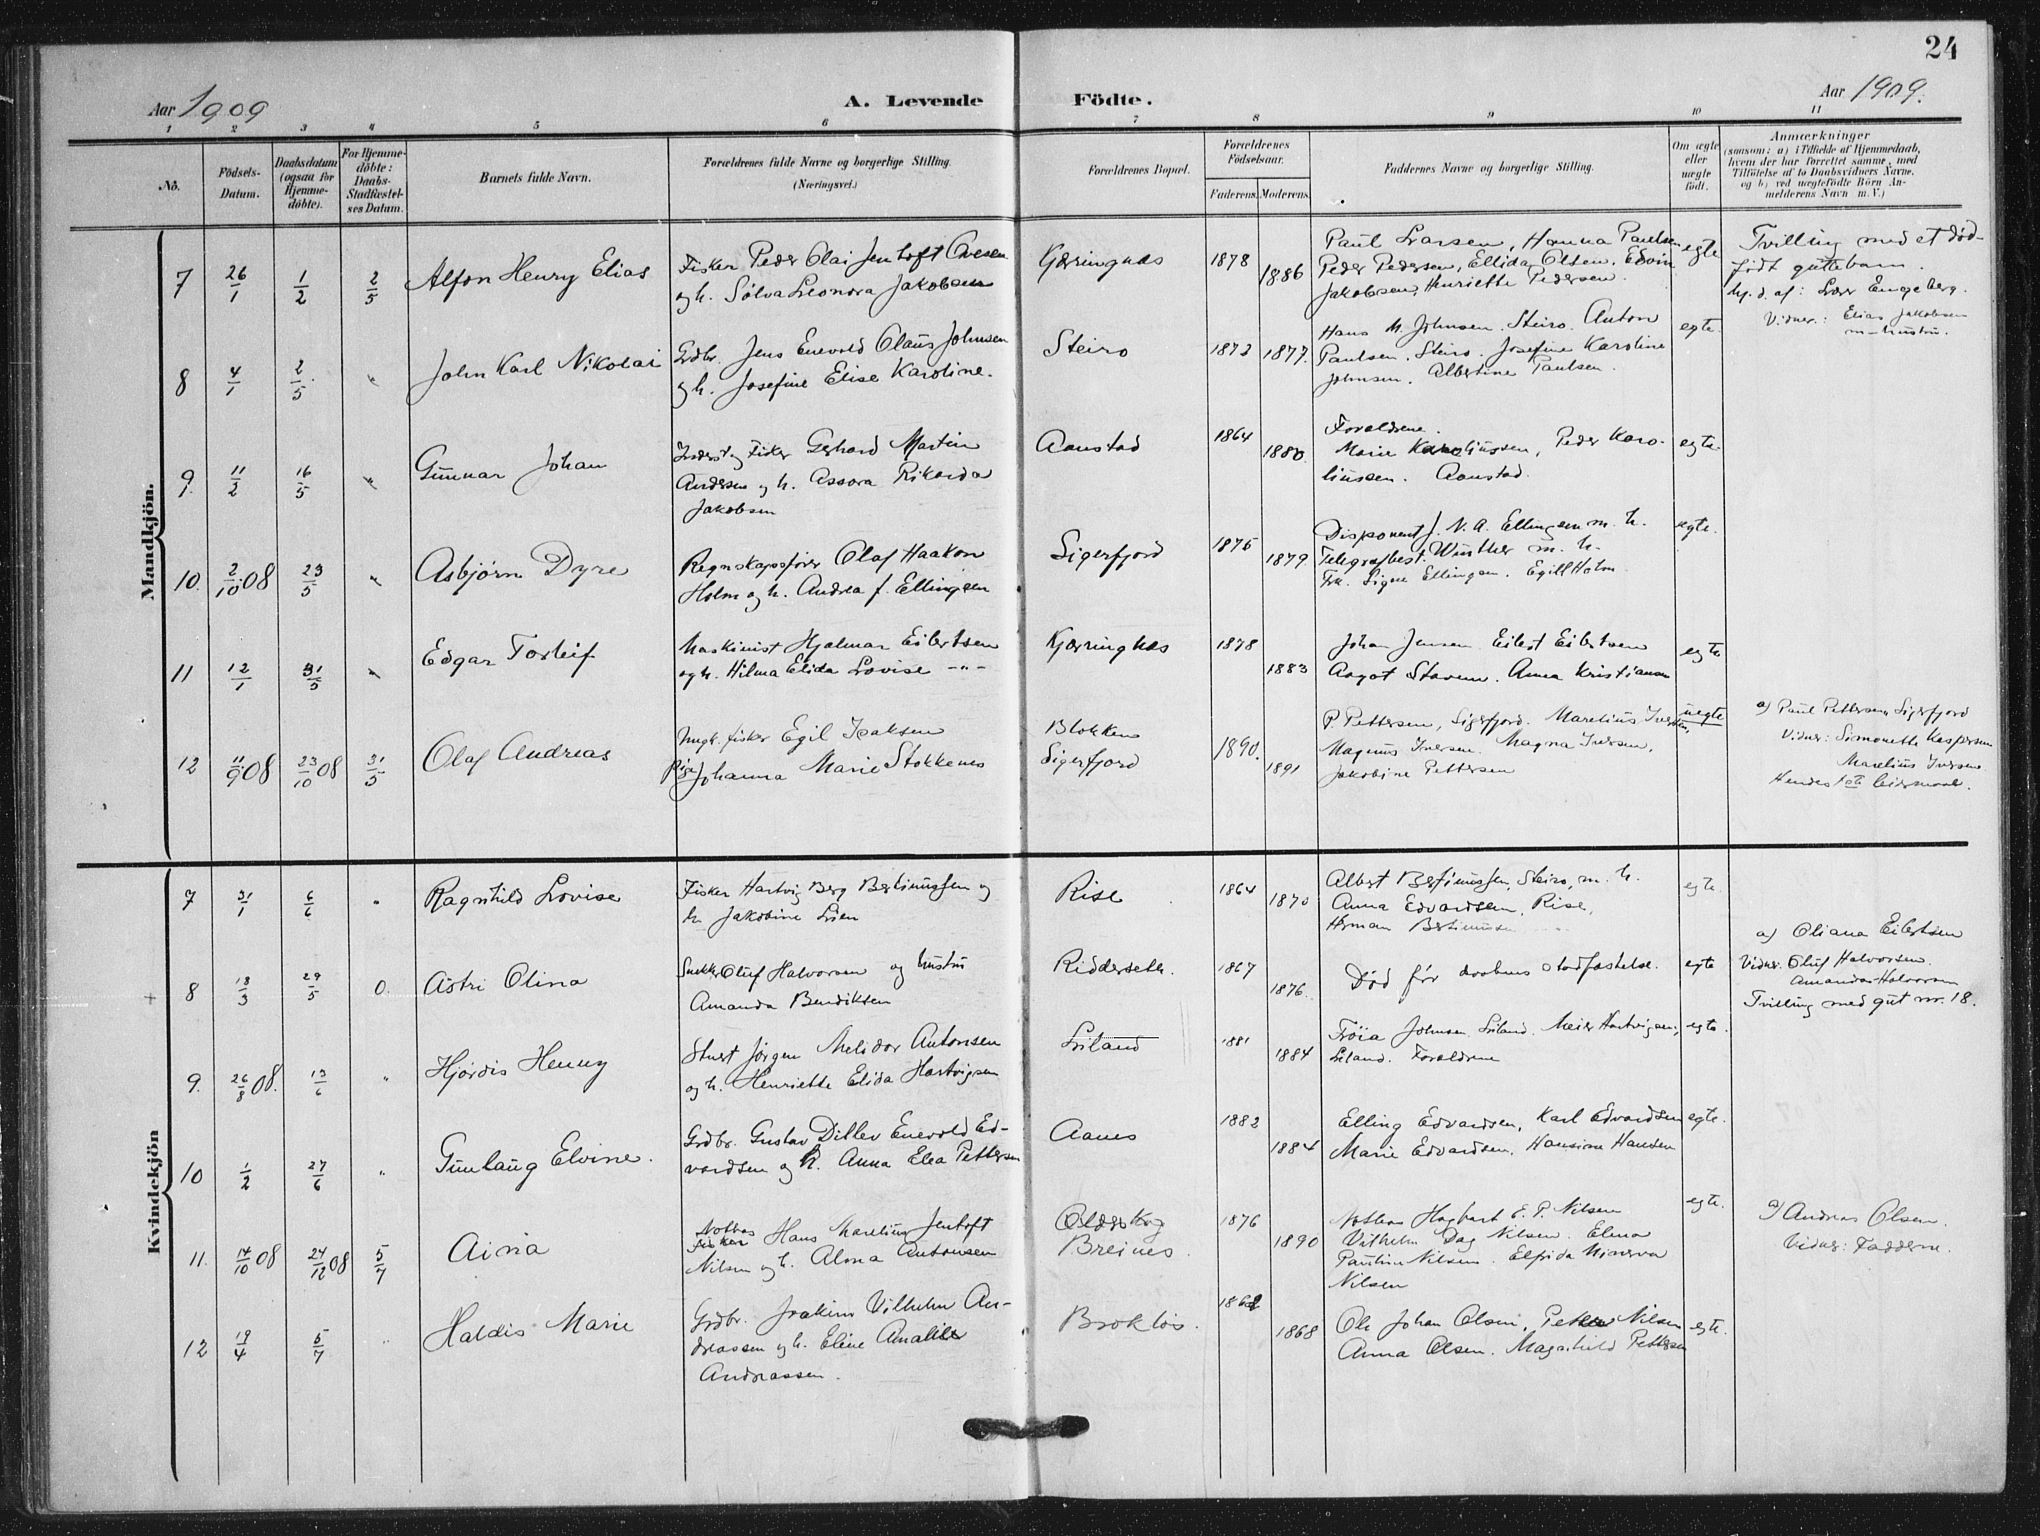 24
Aar 1909
A. Levende Födte.
Aar 1909.
1 2 3 4 5 6 7 8 9 10 11
No.
Födsels-Datum.
Daabsdatum (ogsaa for Hjemme-döbte).
For Hjemme-döbte: Daabs-Stadfæstel-ses Datum.
Barnets fulde Navn.
Forældrenes fulde Navne og borgerlige Stilling. (Næringsvei.)
Forældrenes Bopæl.
Forældrenes Födselsaar.
Faderens. Moderens.
Faddernes Navne og borgerlige Stilling.
Om ægte eller uægte födt.
Anmærkninger
(saasom: a) i Tilfælde af Hjemmedaab, hvem der har forrettet samme, med Tilföielse af to Daabsvidners Navne, og b) ved uægtefödte Börn An-melderens Navn m. V.)
Mandkjön.
7 26/1 1/2 2/5 Alfon Henry Elias
Fisker Peder Olai Jentoft Ovesen
og h. Sølva Leonora Jakobsen
Kjæringnes 1878 1886
Paul Larsen, Hanna Paulsen
Peder Pedersen, Ellida Olsen, Edvin
Jakobsen, Henriette Pedersen.
egte
Tvilling med et død-
født guttebarn.
hj. d. af: Lær Engeberg.
Vidner: Elias Jakobsen
m. hustru.
8 4/1 2/5 " John Karl Nikolai
Grdbr. Jens Enevold Claus Johnsen
og h. Josefine Elise Karoline.
Steiro 1873 1877.
Hans M. Johnsen. Steiro. Anton
Paulsen. Steiro. Josefine Karoline
Johnsen. Albertine Paulsen.
egte.
9. 11/2 16/5 " Gunnar Johan
Inderst og Fisker Gerhard Martin
Andersen og h. Assora Rikarda
Jakobsen
Aanstad 1864 1880.
Forældrene.
Marie Karoliussen, Peder Karo-
liussen. Aanstad.
egte.
10. 2/10 08 23/5 " Asbjørn Dyre
Regnskapsfører Olaf Haakon
Holm og h. Andrea f. Ellingsen
Sigerfjord 1875 1879.
Disponent J. N. A. Ellingsen m. h.
Telegrafbest. Winther m. h.
Frk. Signe Ellingsen. Egill Holm.
egte.
11 12/1 31/5 " Edgar Torleif
Maskinist Hjalmar Eilertsen
og h. Hilma Elida Lovise -"-
Kjæringnes 1878 1883
Johan Jensen Eilert Eilertsen
Aagot Stavem. Anna Kristiansen
egte
12 11/9 08 23/10 08 31/5 Olaf Andreas
Ungk. fisker Egil Isaksen
Pige Johanna Marie Stokkenes
Blokken
Sigerfjord 1890. 1891
P. Pettersen, Sigerfjord. Marelius Iversen,
Magnus Iversen. Magna Iversen,
Jakobine Pettersen
uegte
a) Paul Pettersen, Sigerfjord
Vidner: Simonette Kaspersen
Marelius Iversen
Hendes 1ste leiermaal.
Kvindekjön
7 31/1 6/6 " Ragnhild Lovise
Fisker Hartvig Berg Bertinussen og
h. Jakobine Lien
Rise 1864 1870
Albert Bertinussen, Steiro, m. h.
Anna Edvardsen, Rise,
Herman Bertinussen
egte.
+ 8 18/3 29/5 0. Astri Olina
Snekker Oluf Halvorsen og hustru
Amanda Bendiksen
Ridderseth. 1867 1876.
Død før daabens stadfæstelse.
egte
a) Oliana Eilertsen
Vidner: Oluf Halvorsen.
Amanda Halvorsen
Tvilling med gut nr. 18.
9. 26/8 08. 13/6 " Hjørdis Henny
Stuert Jørgen Melidor Antonsen
og h. Henriette Elida Hartvigsen
Liland 1881 1884
Frøia Johnsen Liland. Meier Hartvigsen,
Liland. Forældrene
egte.
10 1/2 27/6 " Gunlaug Elvine.
Grdbr. Gustav Ditlev Enevold Ed-
vardsen og h. Anna Elea Pettersen
Aanes 1882 1884
Elling Edvardsen, Karl Edvardsen
Marie Edvardsen. Hansine Hansen
egte.
11. 14/10 08 24/12 08 5/7 Aina
Notbas Fisker Hans Marelius Jentoft
Nilsen og h. Alma Antonsen
Olderskog
Breines. 1876 1890
Notbas Hagbart E. P. Nilsen
Vilhelm Dag Nilsen. Elena
Pauline Nilsen. Elfrida Minerva
Nilsen
egte.
a) Andreas Olsen.
Vidner: Fadderne.
12 19/4 5/7 " Haldis Marie
Grdbr. Joakim Vilhelm An-
dreassen og h. Eline Amalie
Andreassen.
Brokløs. 1868
Ole Johan Olsen, Petter Nilsen
Anna Olsen. Magnhild Pettersen
egte.